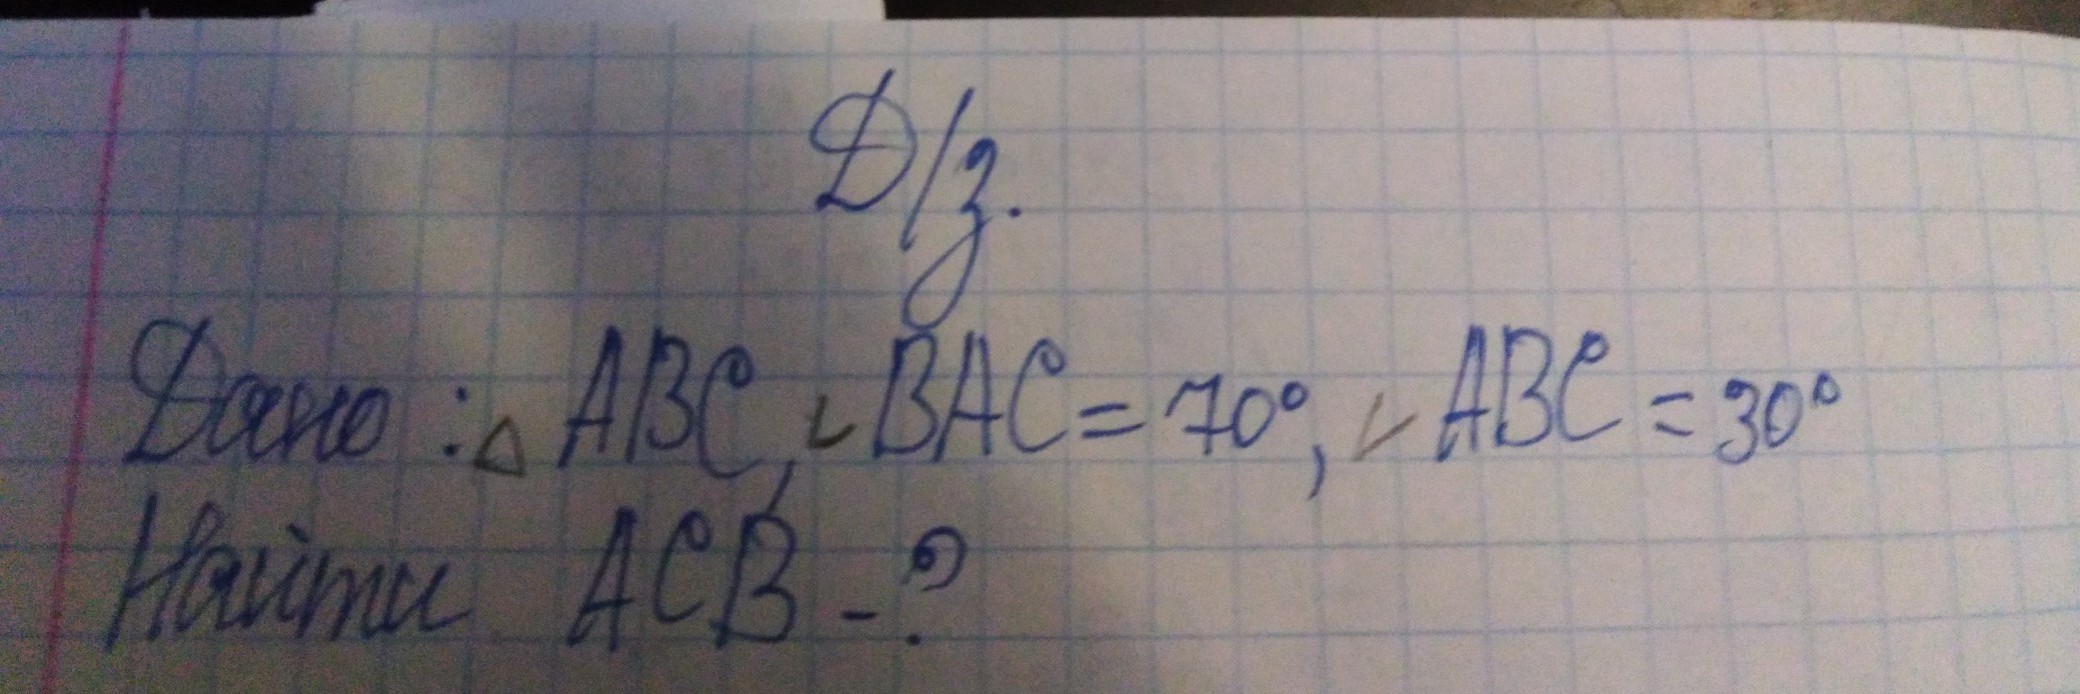 Д/з.
Дано: △ ABC, ∠BAC = 70°, ∠ABC = 30°
Найти ACB - ?